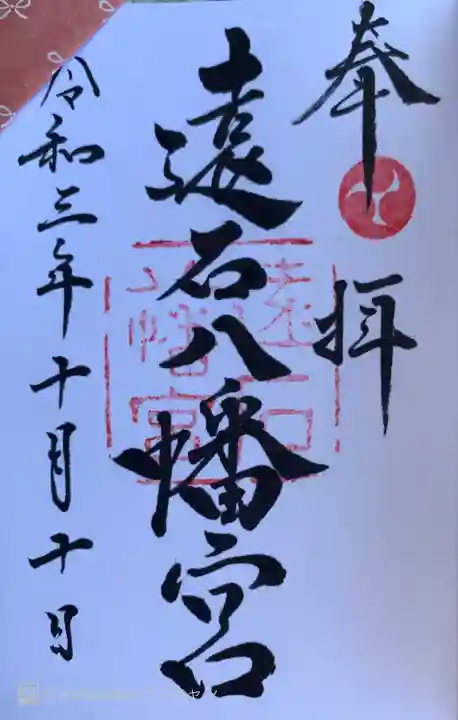 奉拝
遠石八幡宮
遠石八幡宮
令和三年十月十日